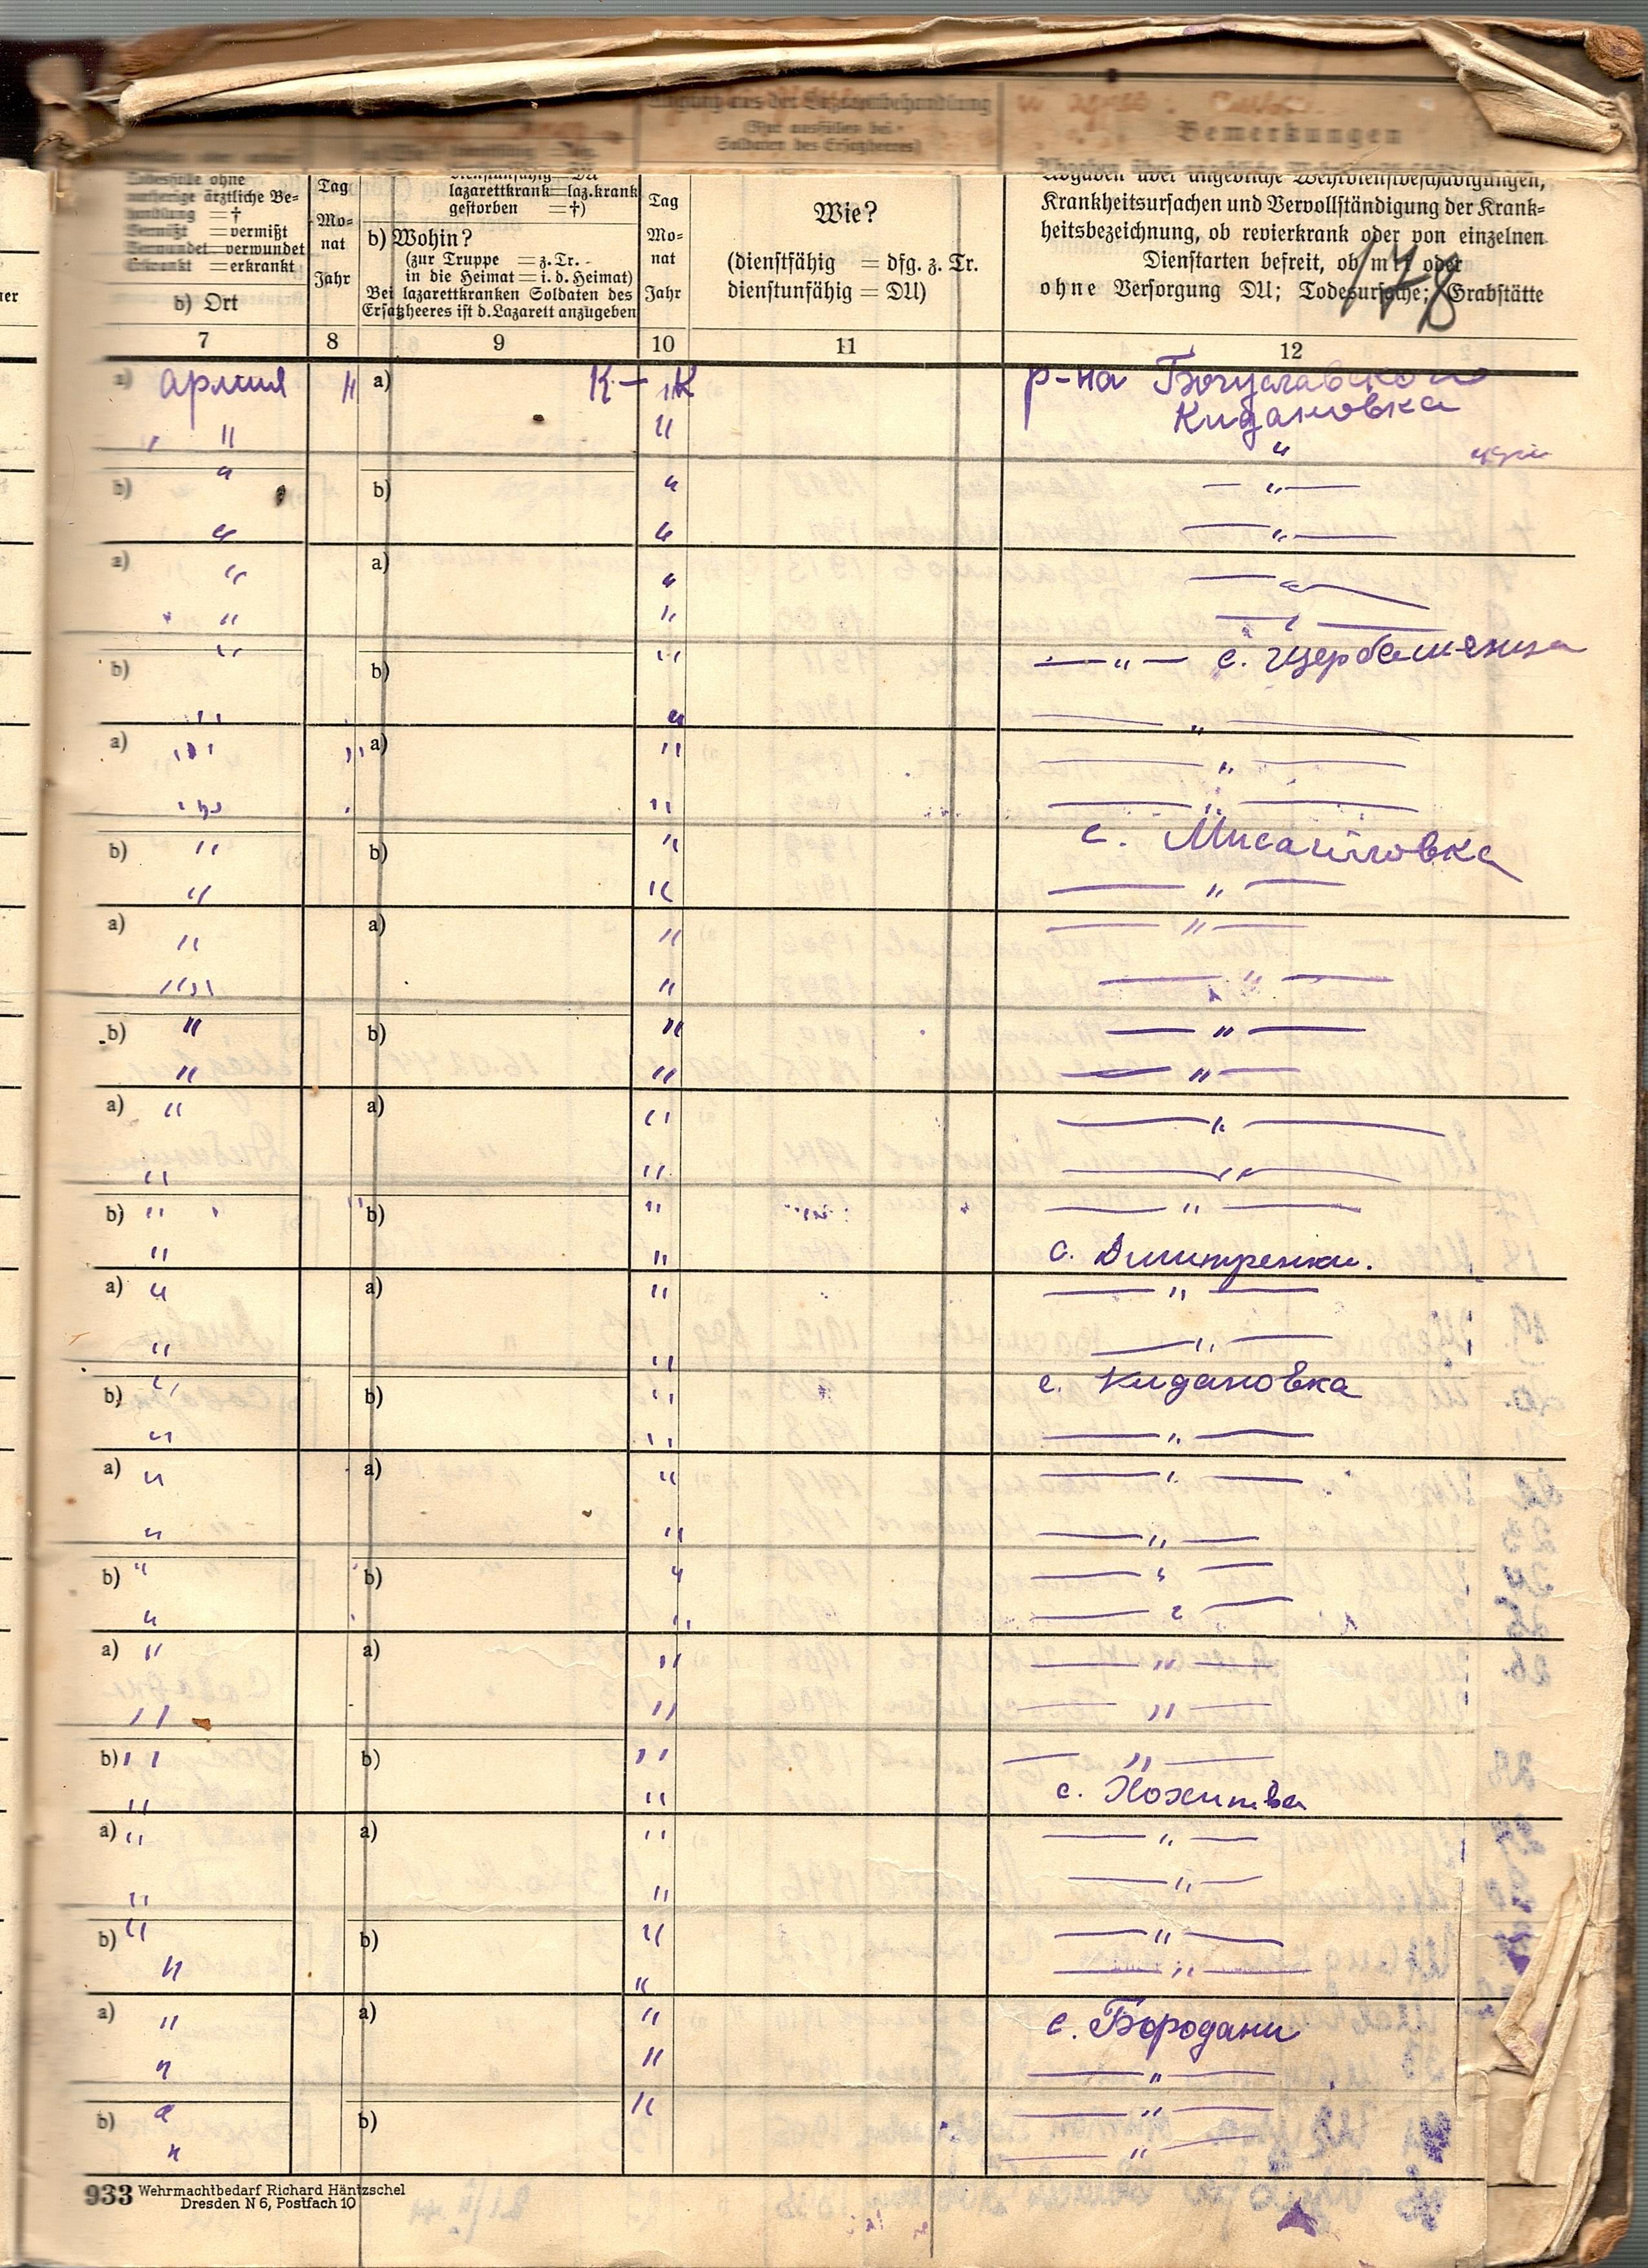 Bemerkungen
Soldaten des Ersatzheeres)
Todesfälle ohne
vorherige ärztliche Be-
handlung = †
Vermißt = vermißt
Verwundet = verwundet
Erkrankt = erkrankt
b) Ort
Tag
Mo-
nat
Jahr
lazarettkrank = laz.krank
gestorben = †)
b) Wohin?
(zur Truppe = z. Tr. -
in die Heimat = i. d. Heimat)
Bei lazarettkranken Soldaten des
Ersatzheeres ist d. Lazarett anzugeben
Tag
Mo-
nat
Jahr
Wie?
(dienstfähig = dfg. z. Tr.
dienstunfähig = DU)
Angaben über angebliche Wehrdienstbeschädigungen,
Krankheitsursachen und Vervollständigung der Krank-
heitsbezeichnung, ob revierkrank oder von einzelnen
Dienstarten befreit, ob mit oder
ohne Versorgung DU; Todesursache; Grabstätte
178
7 8 9 10 11 12
a) армия " a) К- "К р-на Богуславского
" " " Кидановка
"
b) " b) " — " —
" " — " —
a) " a) " — " —
" " — " —
b) " b) " — " — с. Щербашенца
" " — " —
a) " " a) " — " —
" " — " —
b) " b) " с. Мисайловка
" " — " —
a) " a) " — " —
" " — " —
b) " b) " — " —
" " — " —
a) " a) " — " —
" " — " —
b) " " b) " — " —
" " с. Дмитренки.
a) " a) " — " —
" " — " —
b) " b) " с. Кидановка
" " — " —
a) " a) " — " —
" " — " —
b) " b) " — " —
" " — " —
a) " a) " — " —
" " — " —
b) " b) " — " —
" " с. Хохитва
a) " a) " — " —
" " — " —
b) " b) " — " —
" " — " —
a) " a) " с. Бородани
" " — " —
b) " b) " — " —
" — " —
933 Wehrmachtbedarf Richard Häntzschel
Dresden N 6, Postfach 10